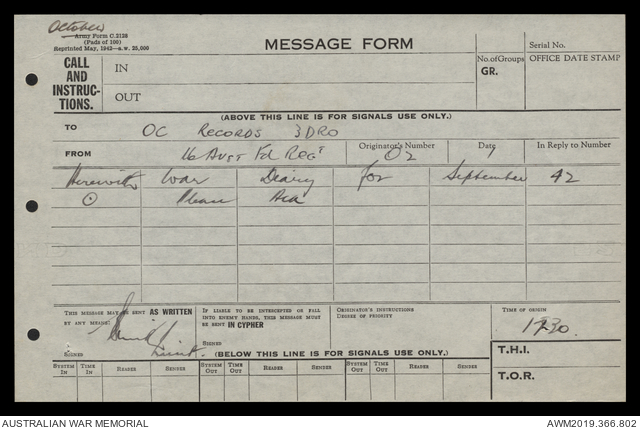 October
Army Form C.2128
(Pads of 100)
Reprinted May, 1942—a.w. 25,000
MESSAGE FORM
Serial No.
CALL AND INSTRUC-TIONS.
IN
OUT
No. of Groups
GR.
OFFICE DATE STAMP
(ABOVE THIS LINE IS FOR SIGNALS USE ONLY.)
TO OC RECORDS 3DRO
FROM 16 AUST Fd REGT
Originator's Number O2
Date 1
In Reply to Number
Herewith War Diary for September 42
⊙ Please Ack
THIS MESSAGE MAY BE SENT AS WRITTEN BY ANY MEANS.
SIGNED Lieut.
IF LIABLE TO BE INTERCEPTED OR FALL INTO ENEMY HANDS, THIS MESSAGE MUST BE SENT IN CYPHER
SIGNED
ORIGINATOR'S INSTRUCTIONS
DEGREE OF PRIORITY
TIME OF ORIGIN
T.H.I.
T.O.R.
(BELOW THIS LINE IS FOR SIGNALS USE ONLY.)
SYSTEM IN TIME IN READER SENDER SYSTEM OUT TIME OUT READER SENDER SYSTEM OUT TIME OUT READER SENDER
AUSTRALIAN WAR MEMORIAL AWM2019.366.802